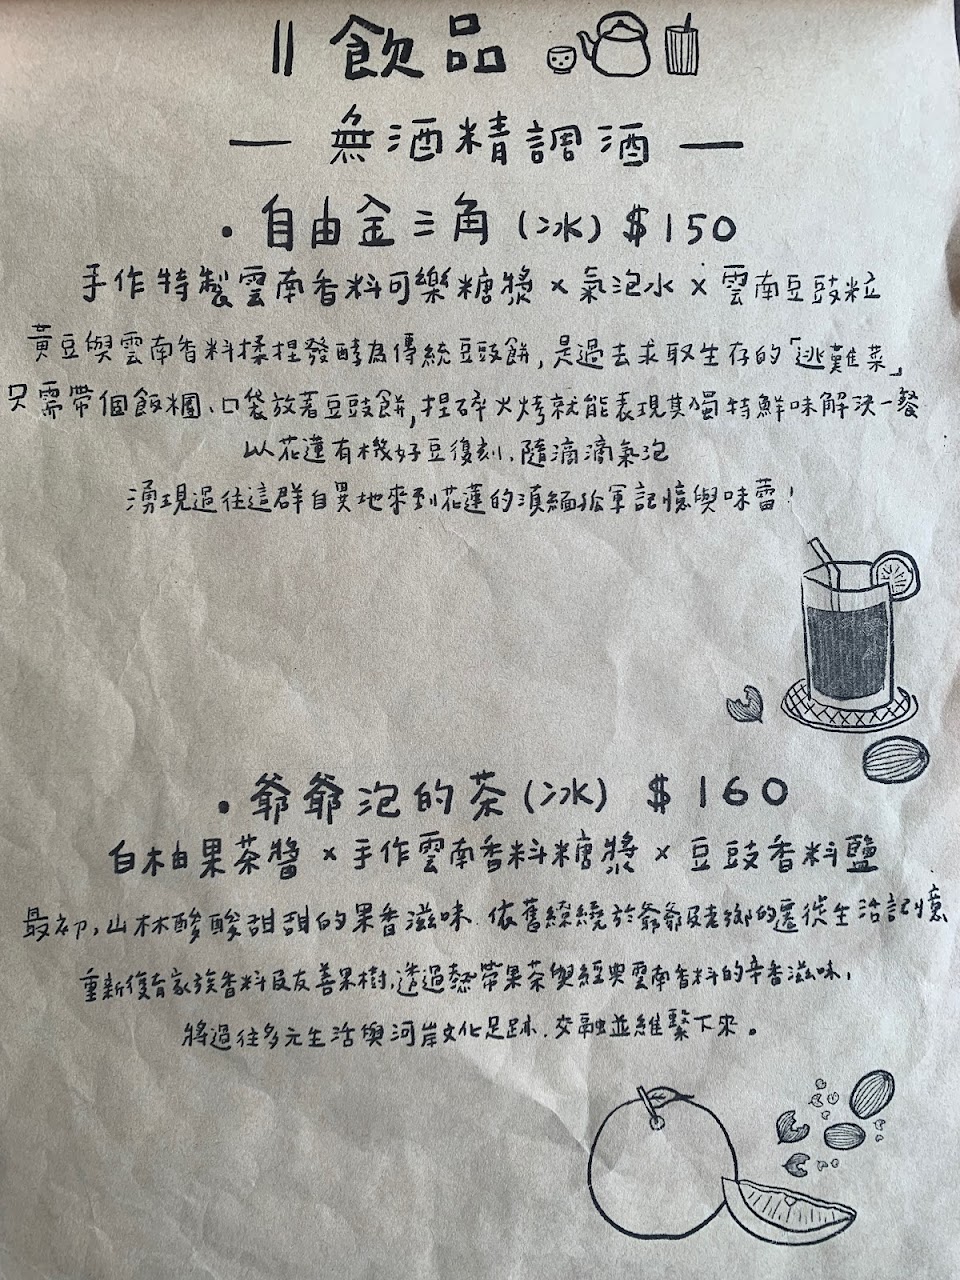 飲品
— 無酒精調酒 —
・自由金三角(冰) $150
手作特製雲南香料可樂糖漿 × 氣泡水 × 雲南豆豉粒
黃豆與雲南香料揉捏發酵為傳統豆豉餅,是過去求取生存的「逃難菜」
只需帶個飯糰、口袋放著豆豉餅,捏碎火烤就能表現其獨特鮮味解決一餐
以花蓮有機好豆復刻,隨滴滴氣泡
湧現過往這群自異地來到花蓮的滇緬孤軍記憶與味蕾!
・爺爺泡的茶(冰) $160
白柚果茶醬 × 手作雲南香料糖漿 × 豆豉香料鹽
最初,山林酸酸甜甜的果香滋味.依舊繚繞於爺爺及老鄉的遷徙生活記憶
重新復育家族香料及友善果樹,透過熱帶果茶與經典雲南香料的辛香滋味,
將過往多元生活與河岸文化足跡.交融並維繫下來。